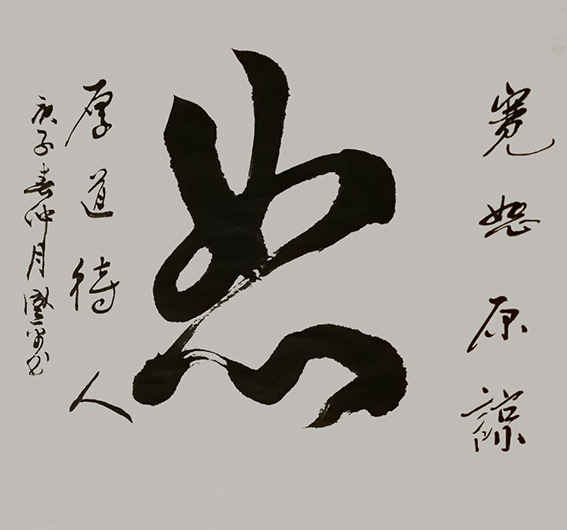 寬恕原諒
恕
厚道待人
庚子春仲月